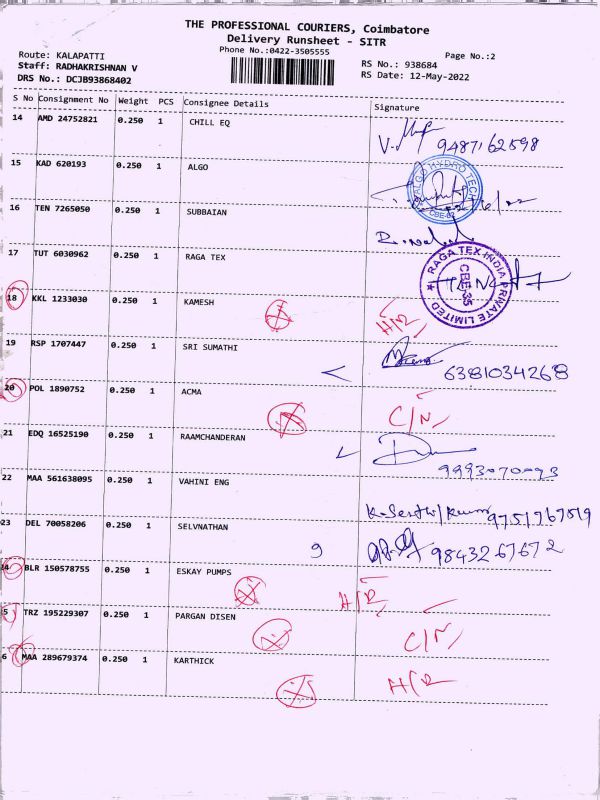 THE PROFESSIONAL COURIERS, Coimbatore
Delivery Runsheet - SITR
Phone No.:0422-3505555
Page No.:2
Route: KALAPATTI
Staff: RADHAKRISHNAN V
DRS No.: DCJB93868402
RS No.: 938684
RS Date: 12-May-2022
S No Consignment No Weight PCS Consignee Details Signature
14 AMD 24752821 0.250 1 CHILL EQ
9487162598
15 KAD 620193 0.250 1 ALGO
ALGO HYDRO TECH
CBE-62
16 TEN 7265050 0.250 1 SUBBAIAN
17 TUT 6030962 0.250 1 RAGA TEX
RAGA TEX INDIA PRIVATE LIMITED
CBE-35
18 KKL 1233030 0.250 1 KAMESH
H/R
19 RSP 1707447 0.250 1 SRI SUMATHI
6381034268
20 POL 1890752 0.250 1 ACMA
C/N
21 EDQ 16525190 0.250 1 RAAMCHANDERAN
22 MAA 561638095 0.250 1 VAHINI ENG
9751767519
23 DEL 70058206 0.250 1 SELVNATHAN
9 9843267672
24 BLR 150578755 0.250 1 ESKAY PUMPS
H/R
5 TRZ 195229307 0.250 1 PARGAN DISEN
C/N
6 MAA 289679374 0.250 1 KARTHICK
H/R